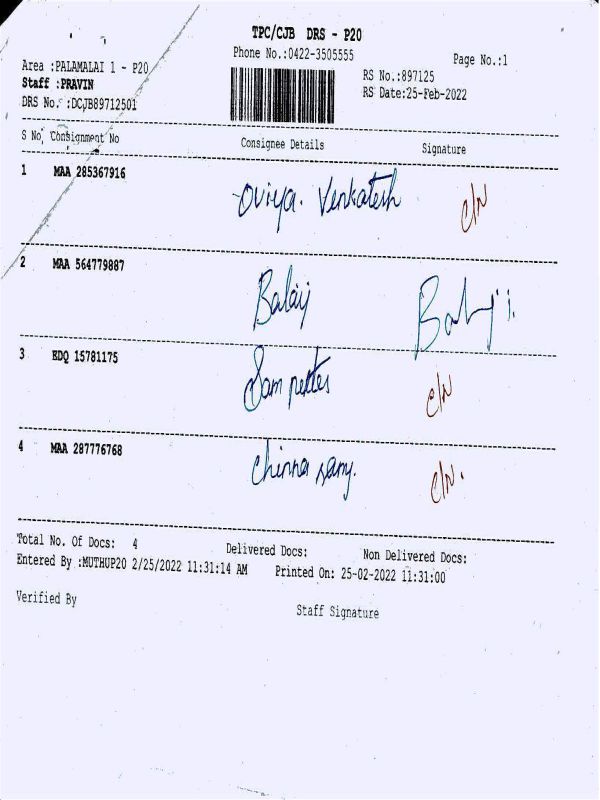 TPC/CJB DRS - P20
Phone No.:0422-3505555
Page No.:1
Area :PALAMALAI 1 - P20
Staff :PRAVIN
DRS No. :DCJB89712501
RS No.:897125
RS Date:25-Feb-2022
S No, Consignment No Consignee Details Signature
1 MAA 285367916 Oviya. Venkatesh C/N
2 MAA 564779887 Balaji Balaji.
3 EDQ 15781175 Sam C/N
4 MAA 287776768 Chinna samy. C/N.
Total No. Of Docs: 4 Delivered Docs: Non Delivered Docs:
Entered By :MUTHUP20 2/25/2022 11:31:14 AM Printed On: 25-02-2022 11:31:00
Verified By Staff Signature